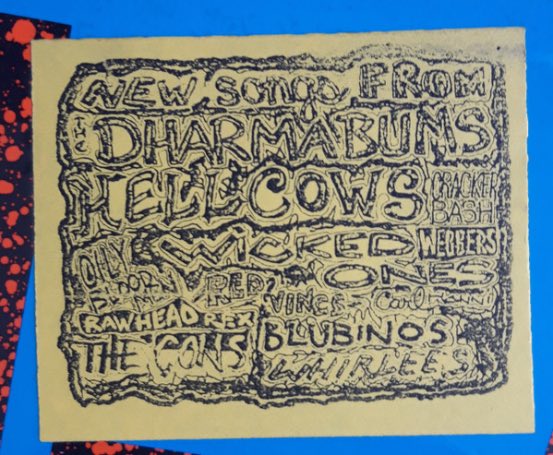 NEW SONGS FROM
THE DHARMABUMS
HELLCOWS CRACKER BASH
WICKED ONES WEBBERS
OILY
RED VINES Carl
RAWHEAD REX BLUBINOS
THE GONS WHIRLEES